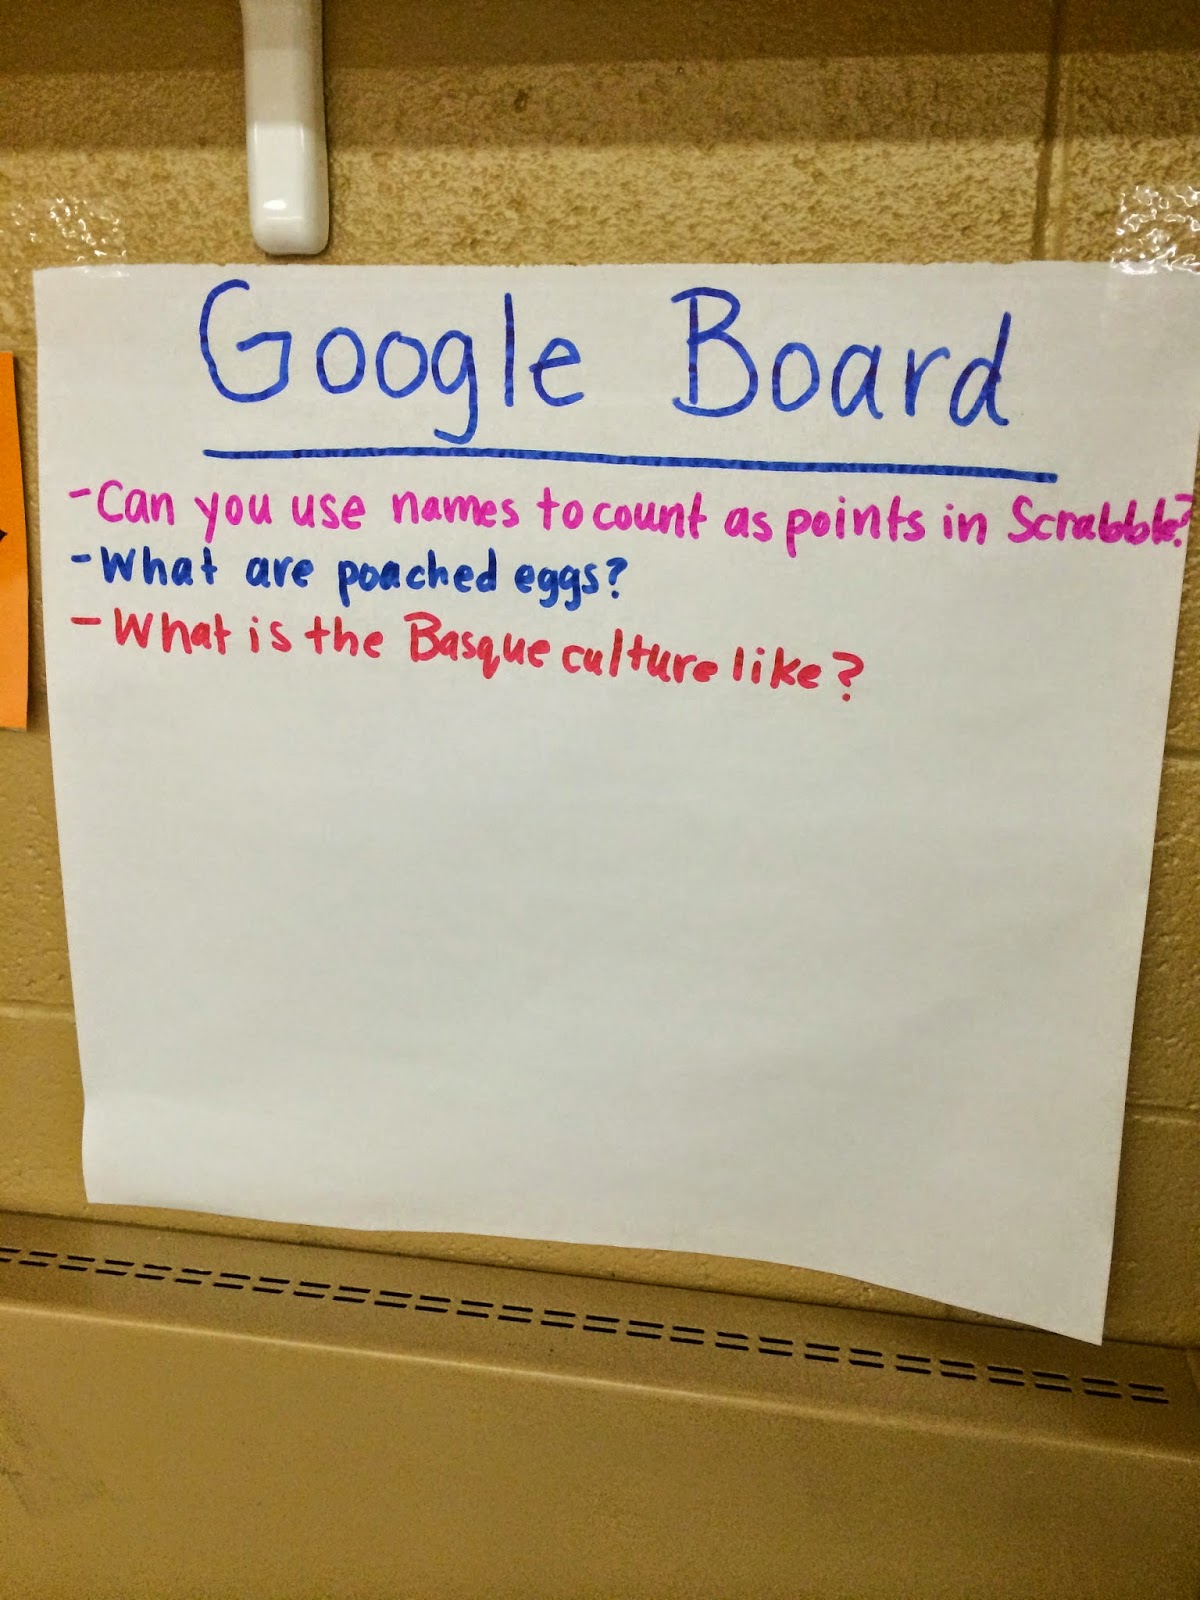 Google Board
-Can you use names to count as points in Scrabble?
-What are poached eggs?
-What is the Basque culture like?